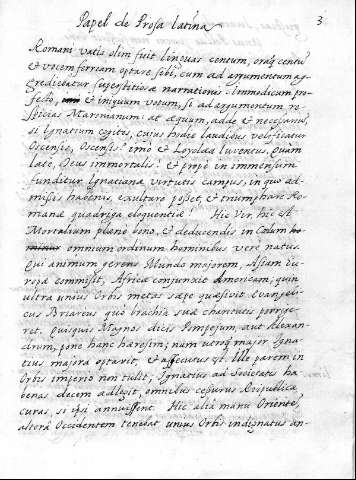 Papel de Prosa latina
3
Romani vatis olim fuit linguas centum, oraq centũ
& vocem ferream optare sibi, cum ad argumentum ag-
grediebatur superstitiosæ narrationis. Immodicum pro-
fecto, & iniquum votum, si ad argumentum re-
spicias Marsmanum: at æquum, adde & necessariũ,
si Ignatium cogites, cuius hodie laudibus velificatur
Oscensis, Oscensis? imo & Loyolæa Iuventus. Quam
late, Deus immortalis! & prope in immensum
funditur Ignatianæ virtutis campus, in quo ad-
missis habenis, exultare posset, & triumphare Ro-
manæ quadriga eloquentiæ! Hic Vir, hic est
Mortalium plane bono, & deducendis in Cœlum
omnium ordinum hominibus vere natus.
Qui animum gerens Mundo majorem, Asiam Eu-
ropæ commisit, Africæ conjunxit Americam, quin
ultra unius Orbis metas sæpe quæsivit Evangeli-
cus Briareus quo brachia suæ charitatis porrige-
ret. Quisquis Magnos dicis Pompejum, aut Alexan-
drum, pone hanc hæresim; nam utroq major Igna-
tius majora optavit, & assecutus est. Ille parem in
Orbis imperio non tulit, Ignatius ad Societatis ha-
benas decem adlegit, omnibus cessurus Reipublicæ
curas, si ipsi annuissent. Hic alta manu Orientẽ,
altera Occidentem tenebat unius Orbis indignatus an-